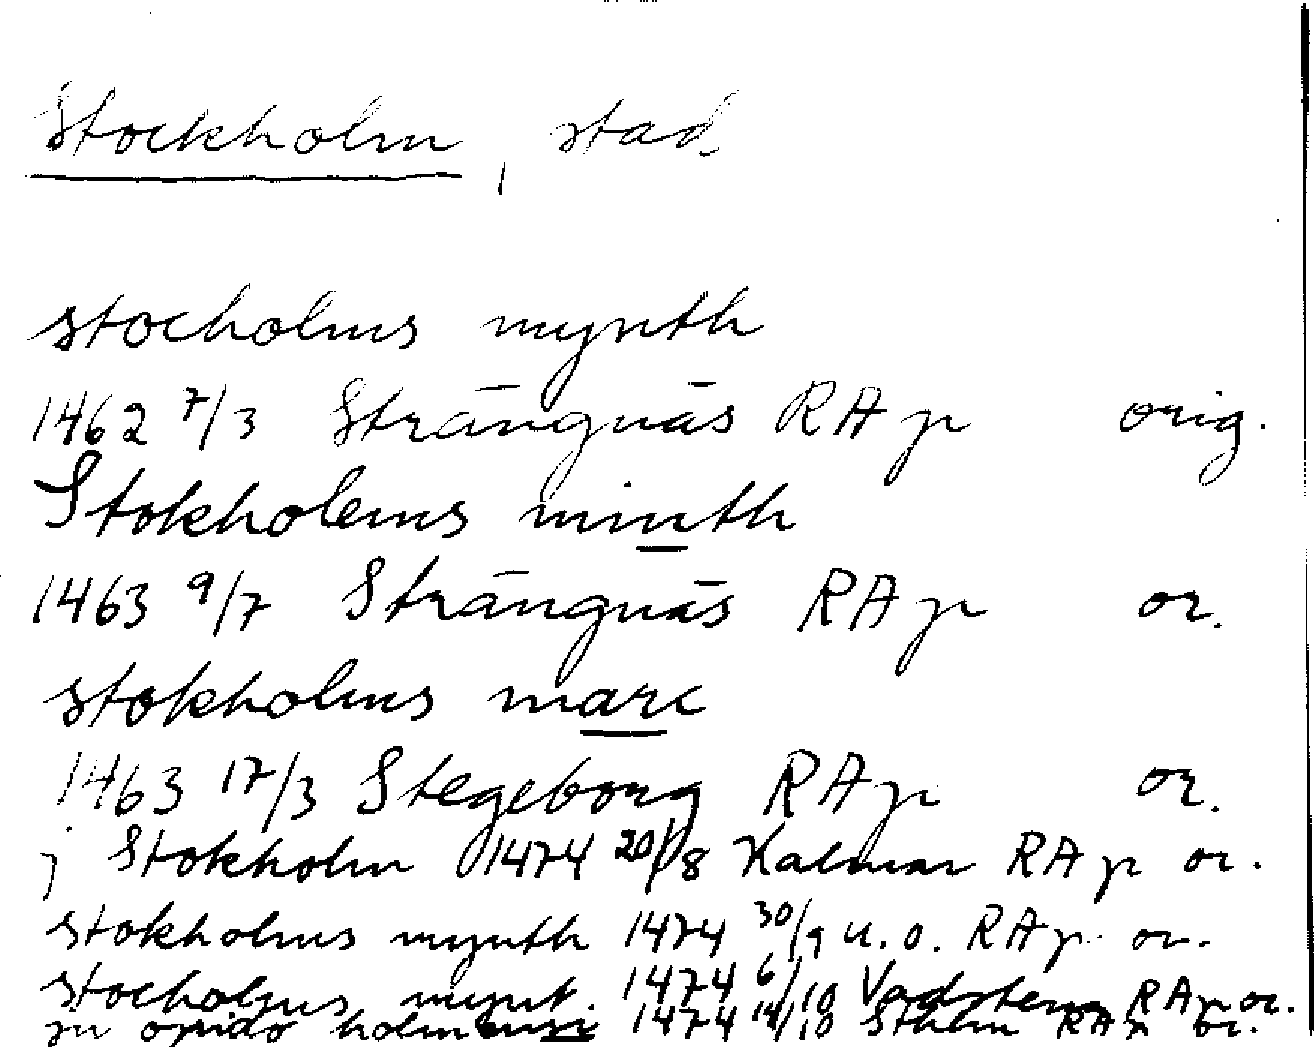 Stockholm, stad
stocholms mynth
1462 7/3 Strängnäs RAp orig.
Stokholems minth
1463 9/7 Strängnäs RAp or.
stokholms marc
1463 17/3 Stegeborg RAp or.
j Stokholm 1474 20/8 Kalmar RAp or.
stokholms mynth 1474 30/9 u.o. RAp or.
stocholms mynt. 1474 6/10 Vadstena RAp or.
in opido holmensi 1474 14/10 Sthlm RAp or.